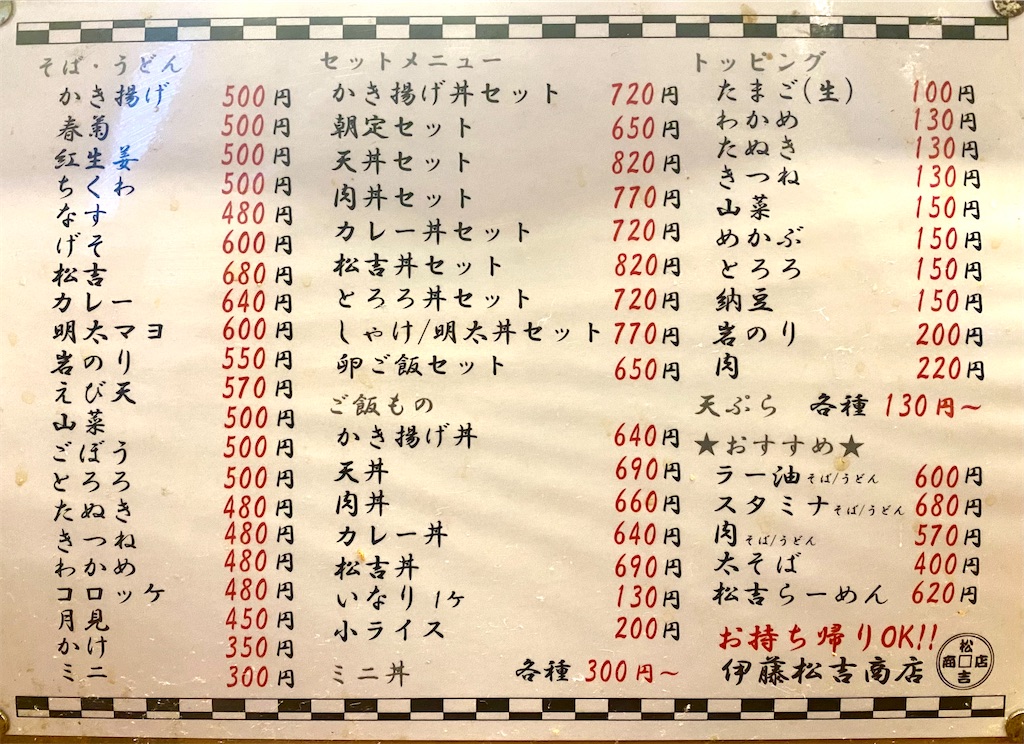 そば・うどん
かき揚げ 500円
春菊 500円
紅生姜 500円
ちくわ 500円
なす 480円
げそ 600円
松吉 680円
カレー 640円
明太マヨ 600円
岩のり 550円
えび天 570円
山菜 500円
ごぼう 500円
とろろ 500円
たぬき 480円
きつね 480円
わかめ 480円
コロッケ 480円
月見 450円
かけ 350円
ミニ 300円
セットメニュー
かき揚げ丼セット 720円
朝定セット 650円
天丼セット 820円
肉丼セット 770円
カレー丼セット 720円
松吉丼セット 820円
とろろ丼セット 720円
しゃけ/明太丼セット 770円
卵ご飯セット 650円
ご飯もの
かき揚げ丼 640円
天丼 690円
肉丼 660円
カレー丼 640円
松吉丼 690円
いなり 1ヶ 130円
小ライス 200円
ミニ丼 各種 300円~
トッピング
たまご(生) 100円
わかめ 130円
たぬき 130円
きつね 130円
山菜 150円
めかぶ 150円
とろろ 150円
納豆 150円
岩のり 200円
肉 220円
天ぷら 各種 130円~
★おすすめ★
ラー油そば/うどん 600円
スタミナそば/うどん 680円
肉そば/うどん 570円
太そば 400円
松吉らーめん 620円
お持ち帰りOK!!
伊藤松吉商店
松吉商店